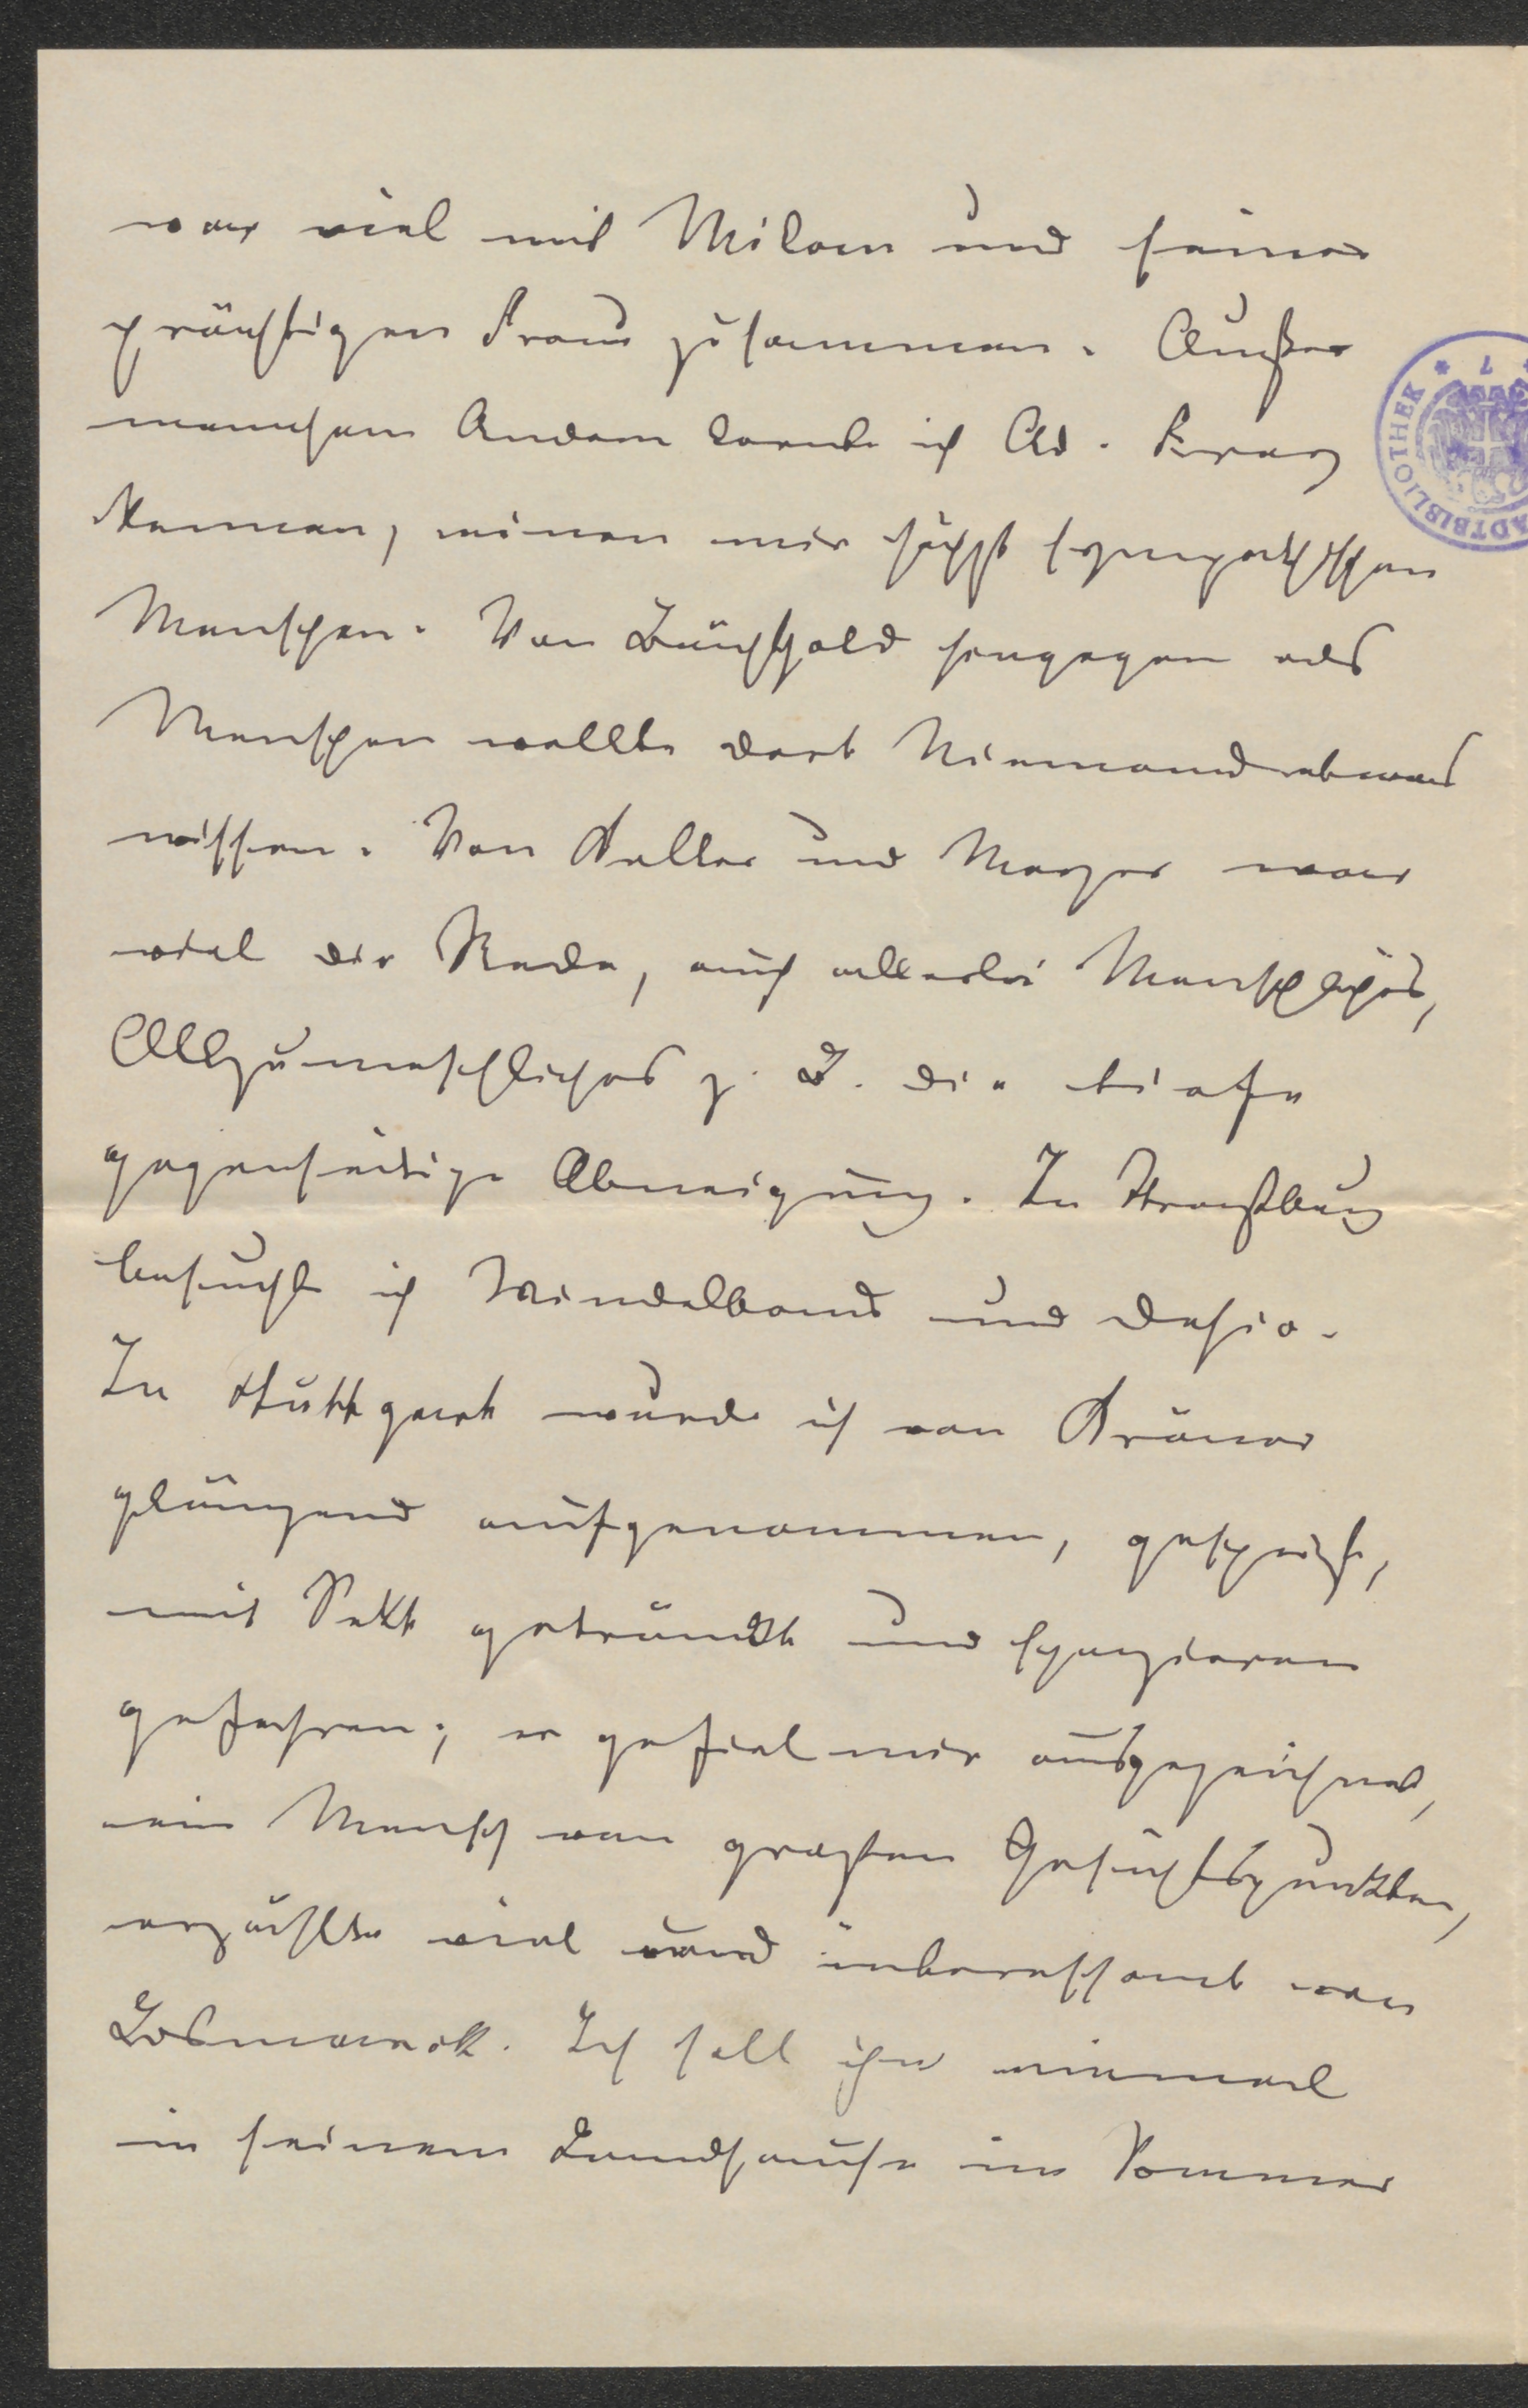 war viel mit Milan und seiner
prächtigen Frau zusammen. Außer
manchem Andern lernte ich Ad. Frey
kennen, einen mir höchst sympathischen
Menschen. Von Bächtold hingegen als
Menschen wollte dort Niemand etwas
wissen. Von Keller und Meyer war
viel die Rede, auch allerlei Menschliches,
Allzumenschliches z. B. die tiefe
gegenseitige Abneigung. In Straßburg
besuchte ich Windelband und Dehio.
In Stuttgart wurde ich von Kröner
glänzend aufgenommen, gespeist,
mit Sekt getränkt und spazieren
gefahren; er gefiel mir ausgezeichnet,
ein Mensch von großen Gesichtspunkten,
erzählte viel und interessant von
Bismarck. Ich soll ihn einmal
in seinem Landhause im Sommer
THEK * 7 *
ADTBIBLIOTHEK